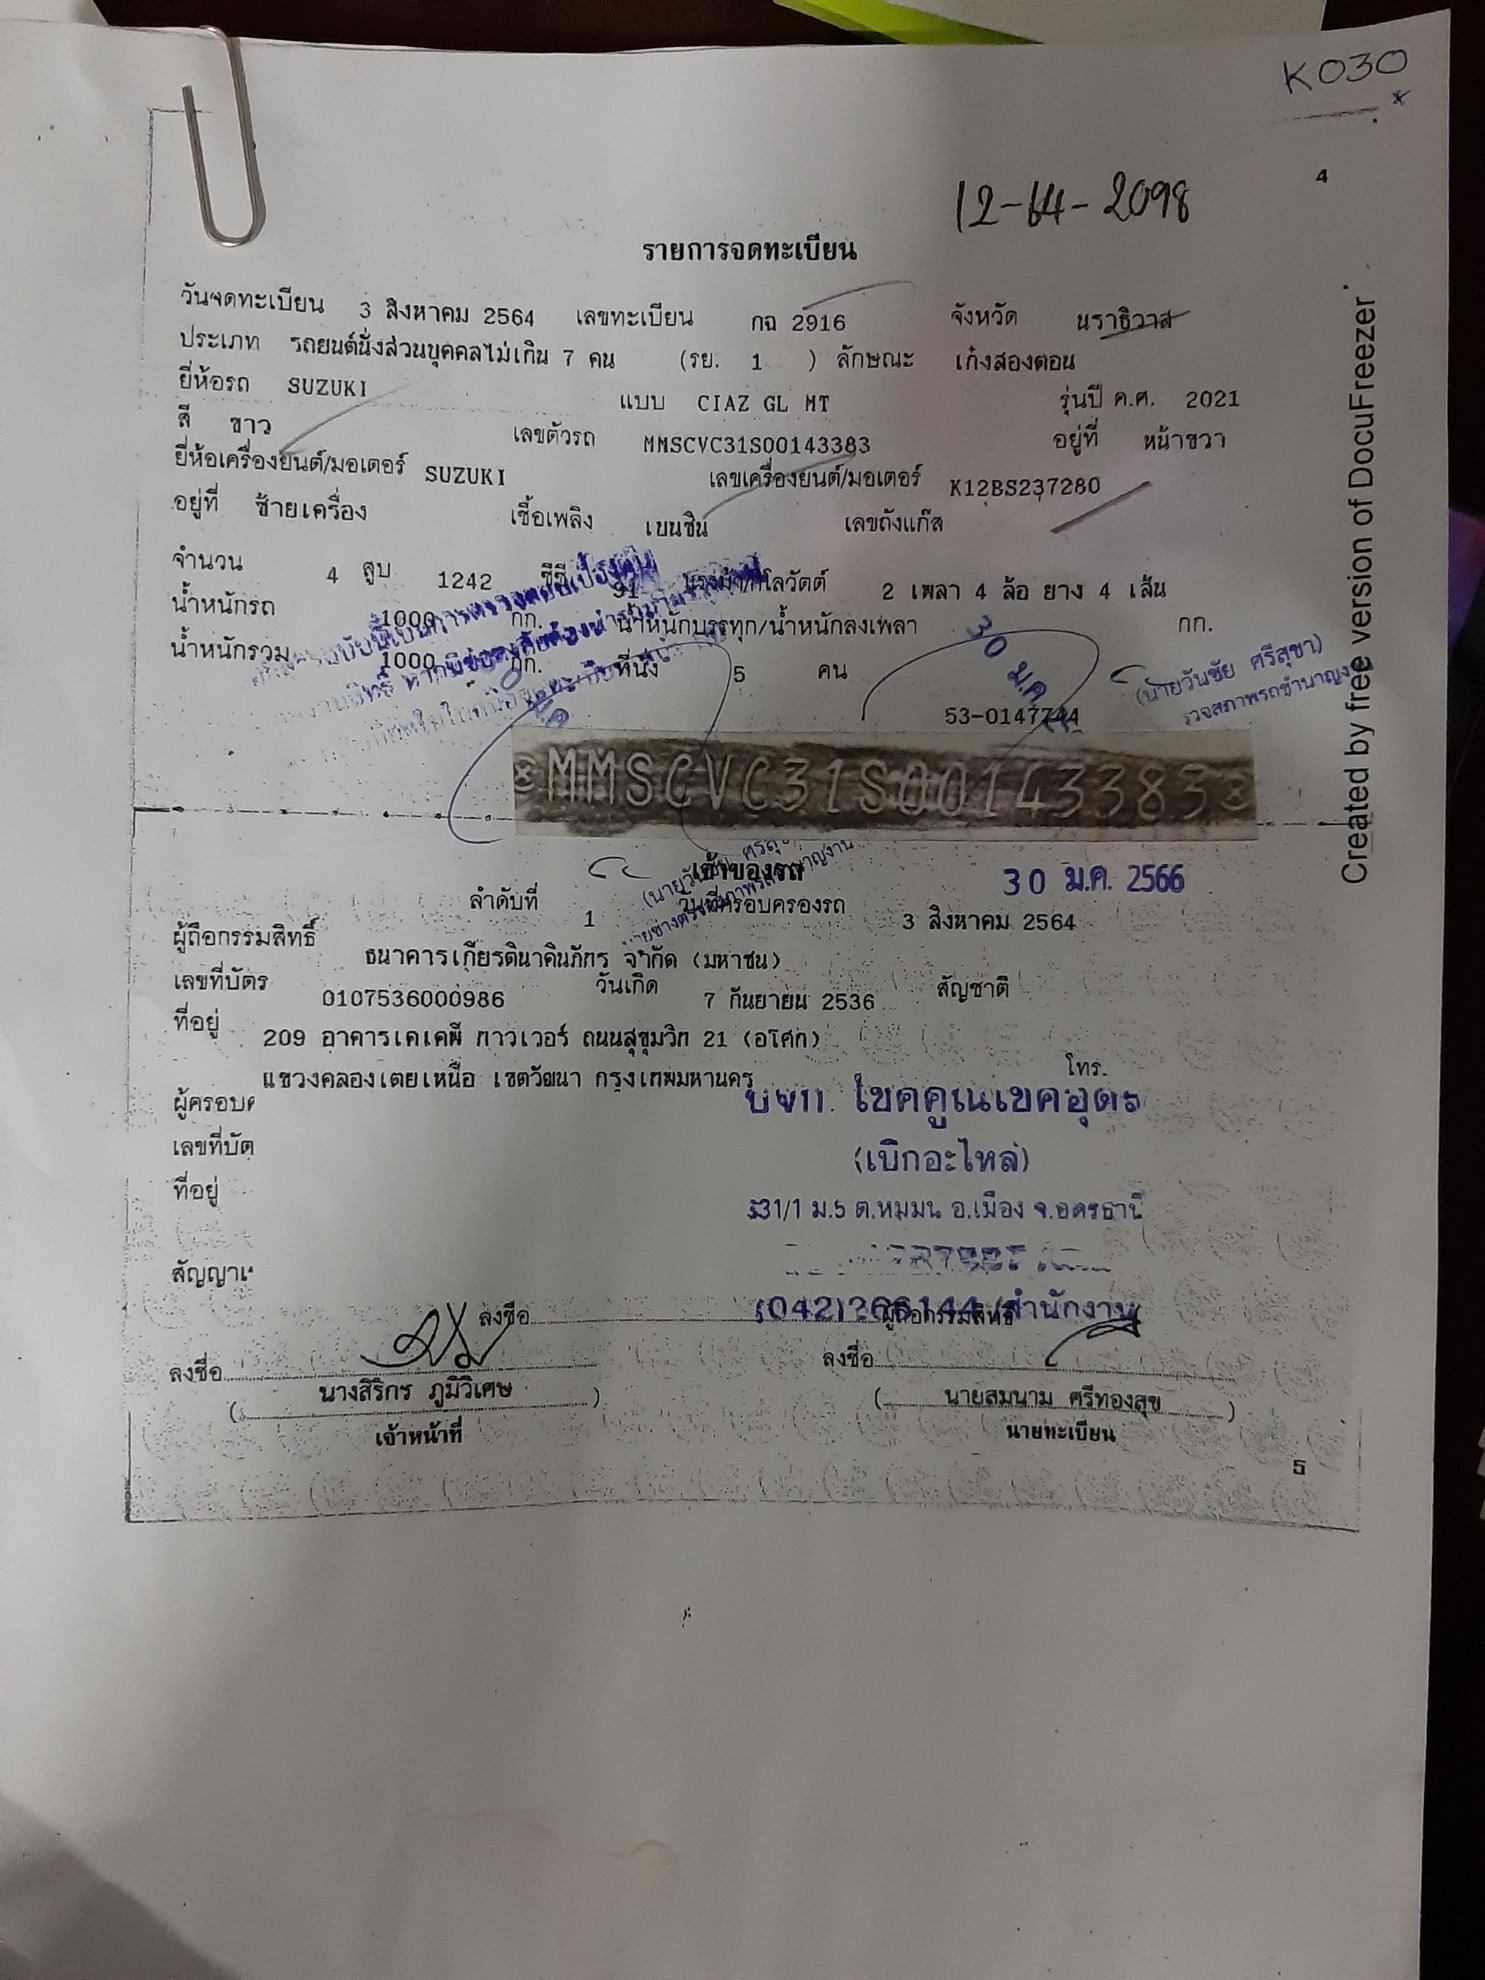 K030
4
12-64-2098
รายการจดทะเบียน
วันจดทะเบียน 3 สิงหาคม 2564 เลขทะเบียน กฉ 2916 จังหวัด นราธิวาส
ประเภท รถยนต์นั่งส่วนบุคคลไม่เกิน 7 คน (รย. 1 ) ลักษณะ เก๋งสองตอน
ยี่ห้อรถ SUZUKI แบบ CIAZ GL MT รุ่นปี ค.ศ. 2021
สี ขาว เลขตัวรถ MMSCVC31S00143383 อยู่ที่ หน้าขวา
ยี่ห้อเครื่องยนต์/มอเตอร์ SUZUKI เลขเครื่องยนต์/มอเตอร์ K12BS237280
อยู่ที่ ซ้ายเครื่อง เชื้อเพลิง เบนซิน เลขถังแก๊ส
จำนวน 4 สูบ 1242 ซีซี 91 แรงม้า/กิโลวัตต์ 2 เพลา 4 ล้อ ยาง 4 เส้น
น้ำหนักรถ 1000 กก. น้ำหนักบรรทุก/น้ำหนักลงเพลา กก.
น้ำหนักรวม 1000 กก. ที่นั่ง 5 คน
30 ม.ค.
(นายวันชัย ศรีสุขา)
53-0147744
MMSCVC31S00143383
เจ้าของรถ
30 ม.ค. 2566
ลำดับที่ 1 วันที่ครอบครองรถ 3 สิงหาคม 2564
ผู้ถือกรรมสิทธิ์ ธนาคารเกียรตินาคินภัทร จำกัด (มหาชน)
เลขที่บัตร 0107536000986 วันเกิด 7 กันยายน 2536 สัญชาติ
ที่อยู่ 209 อาคารเคเคพี ทาวเวอร์ ถนนสุขุมวิท 21 (อโศก)
แขวงคลองเตยเหนือ เขตวัฒนา กรุงเทพมหานคร
โทร.
ผู้ครอบค
เลขที่บัต
(เบิกอะไหล่)
ที่อยู่
ม.5 ต.หมูม่น อ.เมือง จ.อุดรธานี
สัญญาเ
(042)266144 (สำนักงาน)
ลงชื่อ ผู้ถือกรรมสิทธิ์
ลงชื่อ ลงชื่อ
(นางสิริกร ภูมิวิเศษ) (นายสมนาม ศรีทองสุข)
เจ้าหน้าที่ นายทะเบียน
5
Created by free version of DocuFreezer